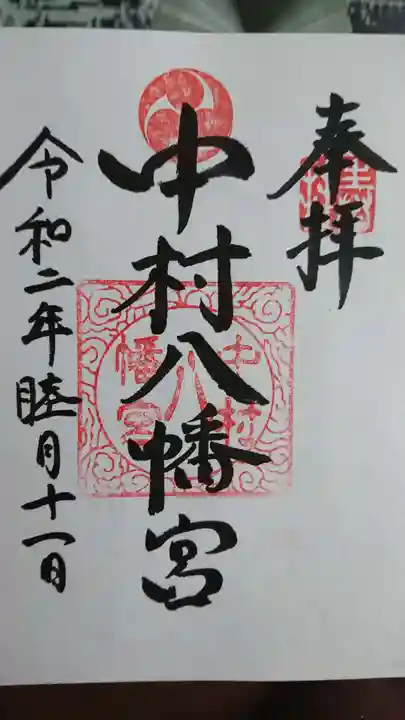 奉拝
中村八幡宮
令和二年睦月十一日
中村
八
幡宮